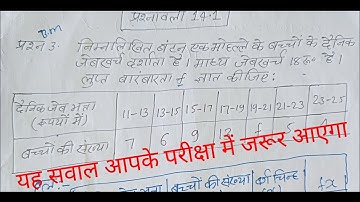 प्रश्नावली 14.1
D.m
प्रश्न 3. निम्नलिखित बंटन एक मोहल्ले के बच्चों के दैनिक
जेबखर्च दर्शाता है। माध्य जेबखर्च 18रू० है।
लुप्त बारंबारता f ज्ञात कीजिए:
दैनिक जेब भत्ता (रूपयों में) 11-13 13-15 15-17 17-19 19-21 21-23 23-25
बच्चों की संख्या 7 6 9 13 f 5 4
यह सवाल आपके परीक्षा में जरूर आएगा
बच्चों की संख्या वर्ग चिन्ह fx